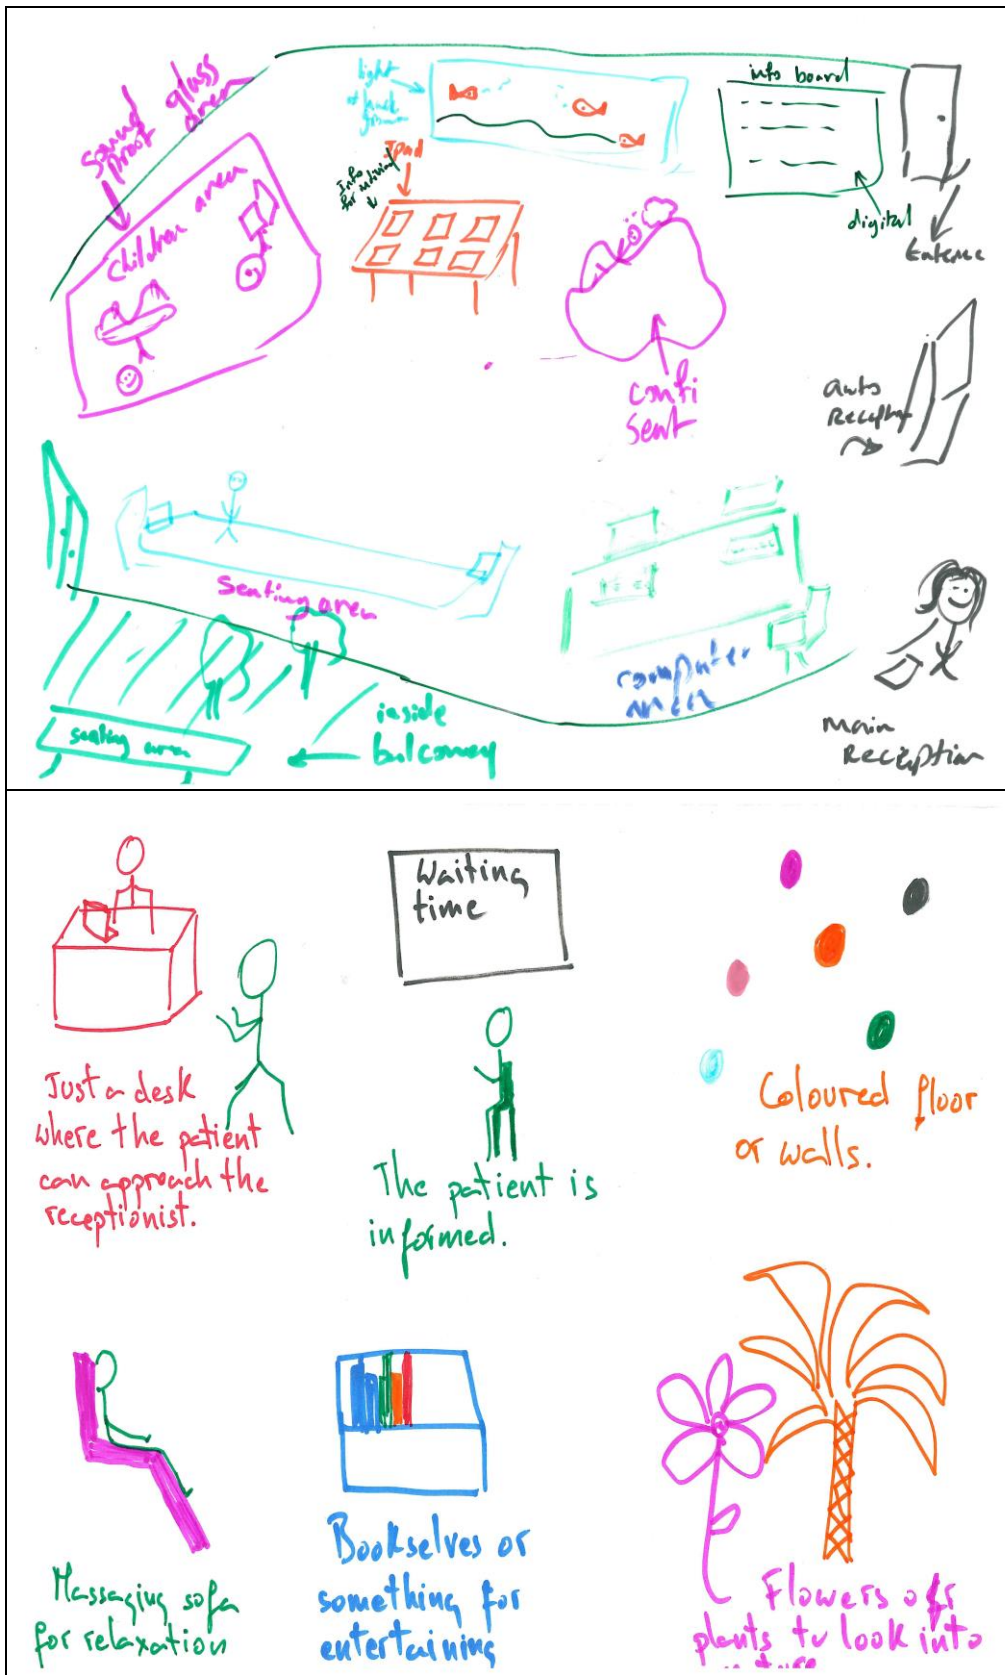 Sound
Proof
glass
area
Children area
light
at back
Ipad
Info
for
info board
digital
confi
seat
auto
Main
Reception
seating area
computer
area
seating area
inside
balconey
Just a desk
where the patient
can approach the
receptionist.
Waiting
time
The patient is
informed.
Coloured floor
or walls.
Massaging sofa
for relaxation
Bookselves or
something for
entertaining
Flowers or
plants to look into